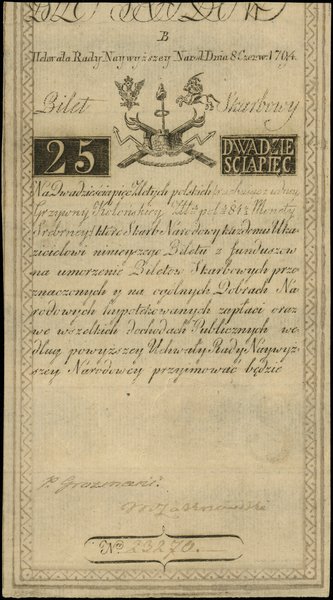 B
Uchwała Rady Naywyższey Narod: Dnia 8 Czerw: 1794.
Bilet Skarbowy
25 DWADZIE
SCIAPIĘC
Na Dwadzieściapięć Złotych polskich rachuiąc z iedney
Grzywny Kolonskiey Złtch pol: 84½ Monety
Srebrney, które Skarb Narodowy każdemu Oka-
zicielowi ninieyszego Biletu z funduszow
na umorzenie Biletow Skarbowych prze-
znaczonych y na ogulnych Dobrach Na-
rodowych hypotekowanych zapłaci oraz
we wszelkich dochodach Publicznych we-
dług powyższey Uchwały Rady Naywyż-
szey Narodowey przyimować będzie
P. Grozmani.
Nro 23270.